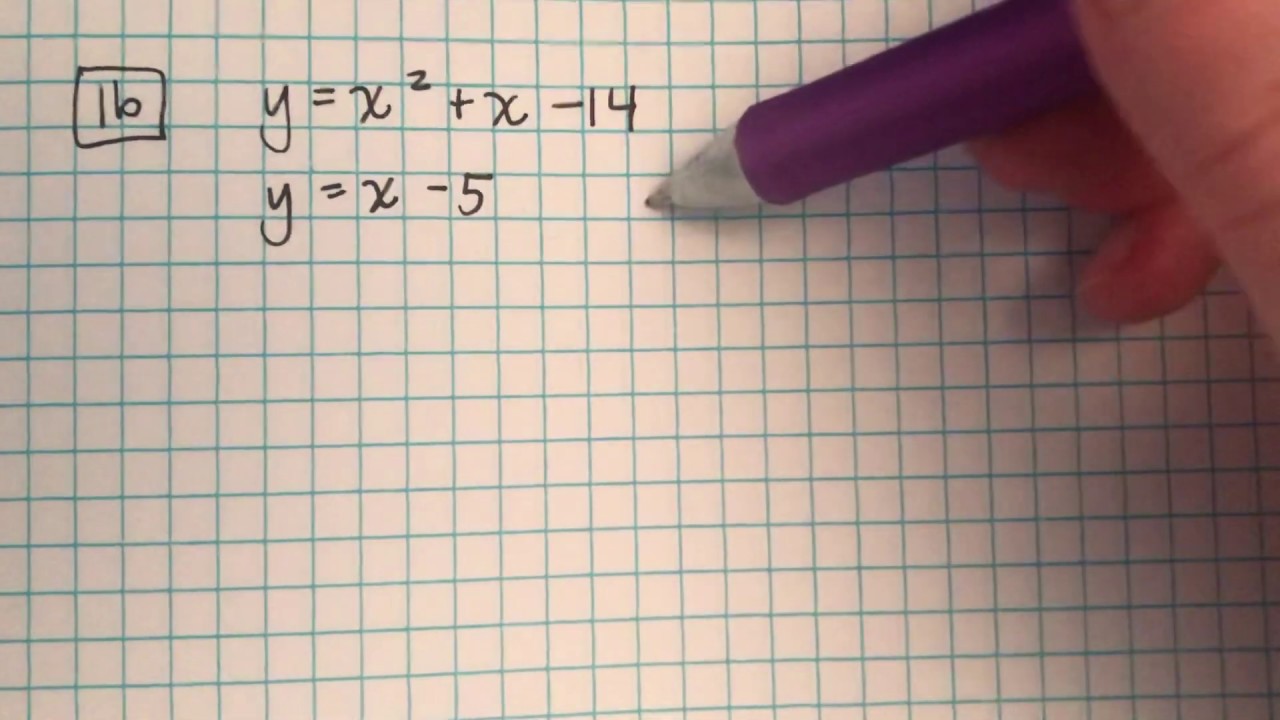 1b y = x² + x - 14
y = x - 5